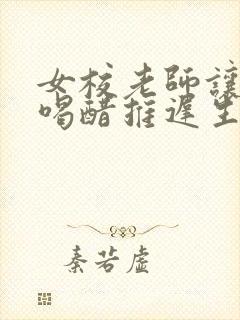 女校老師讓
喝醋推遲生
秦若虛